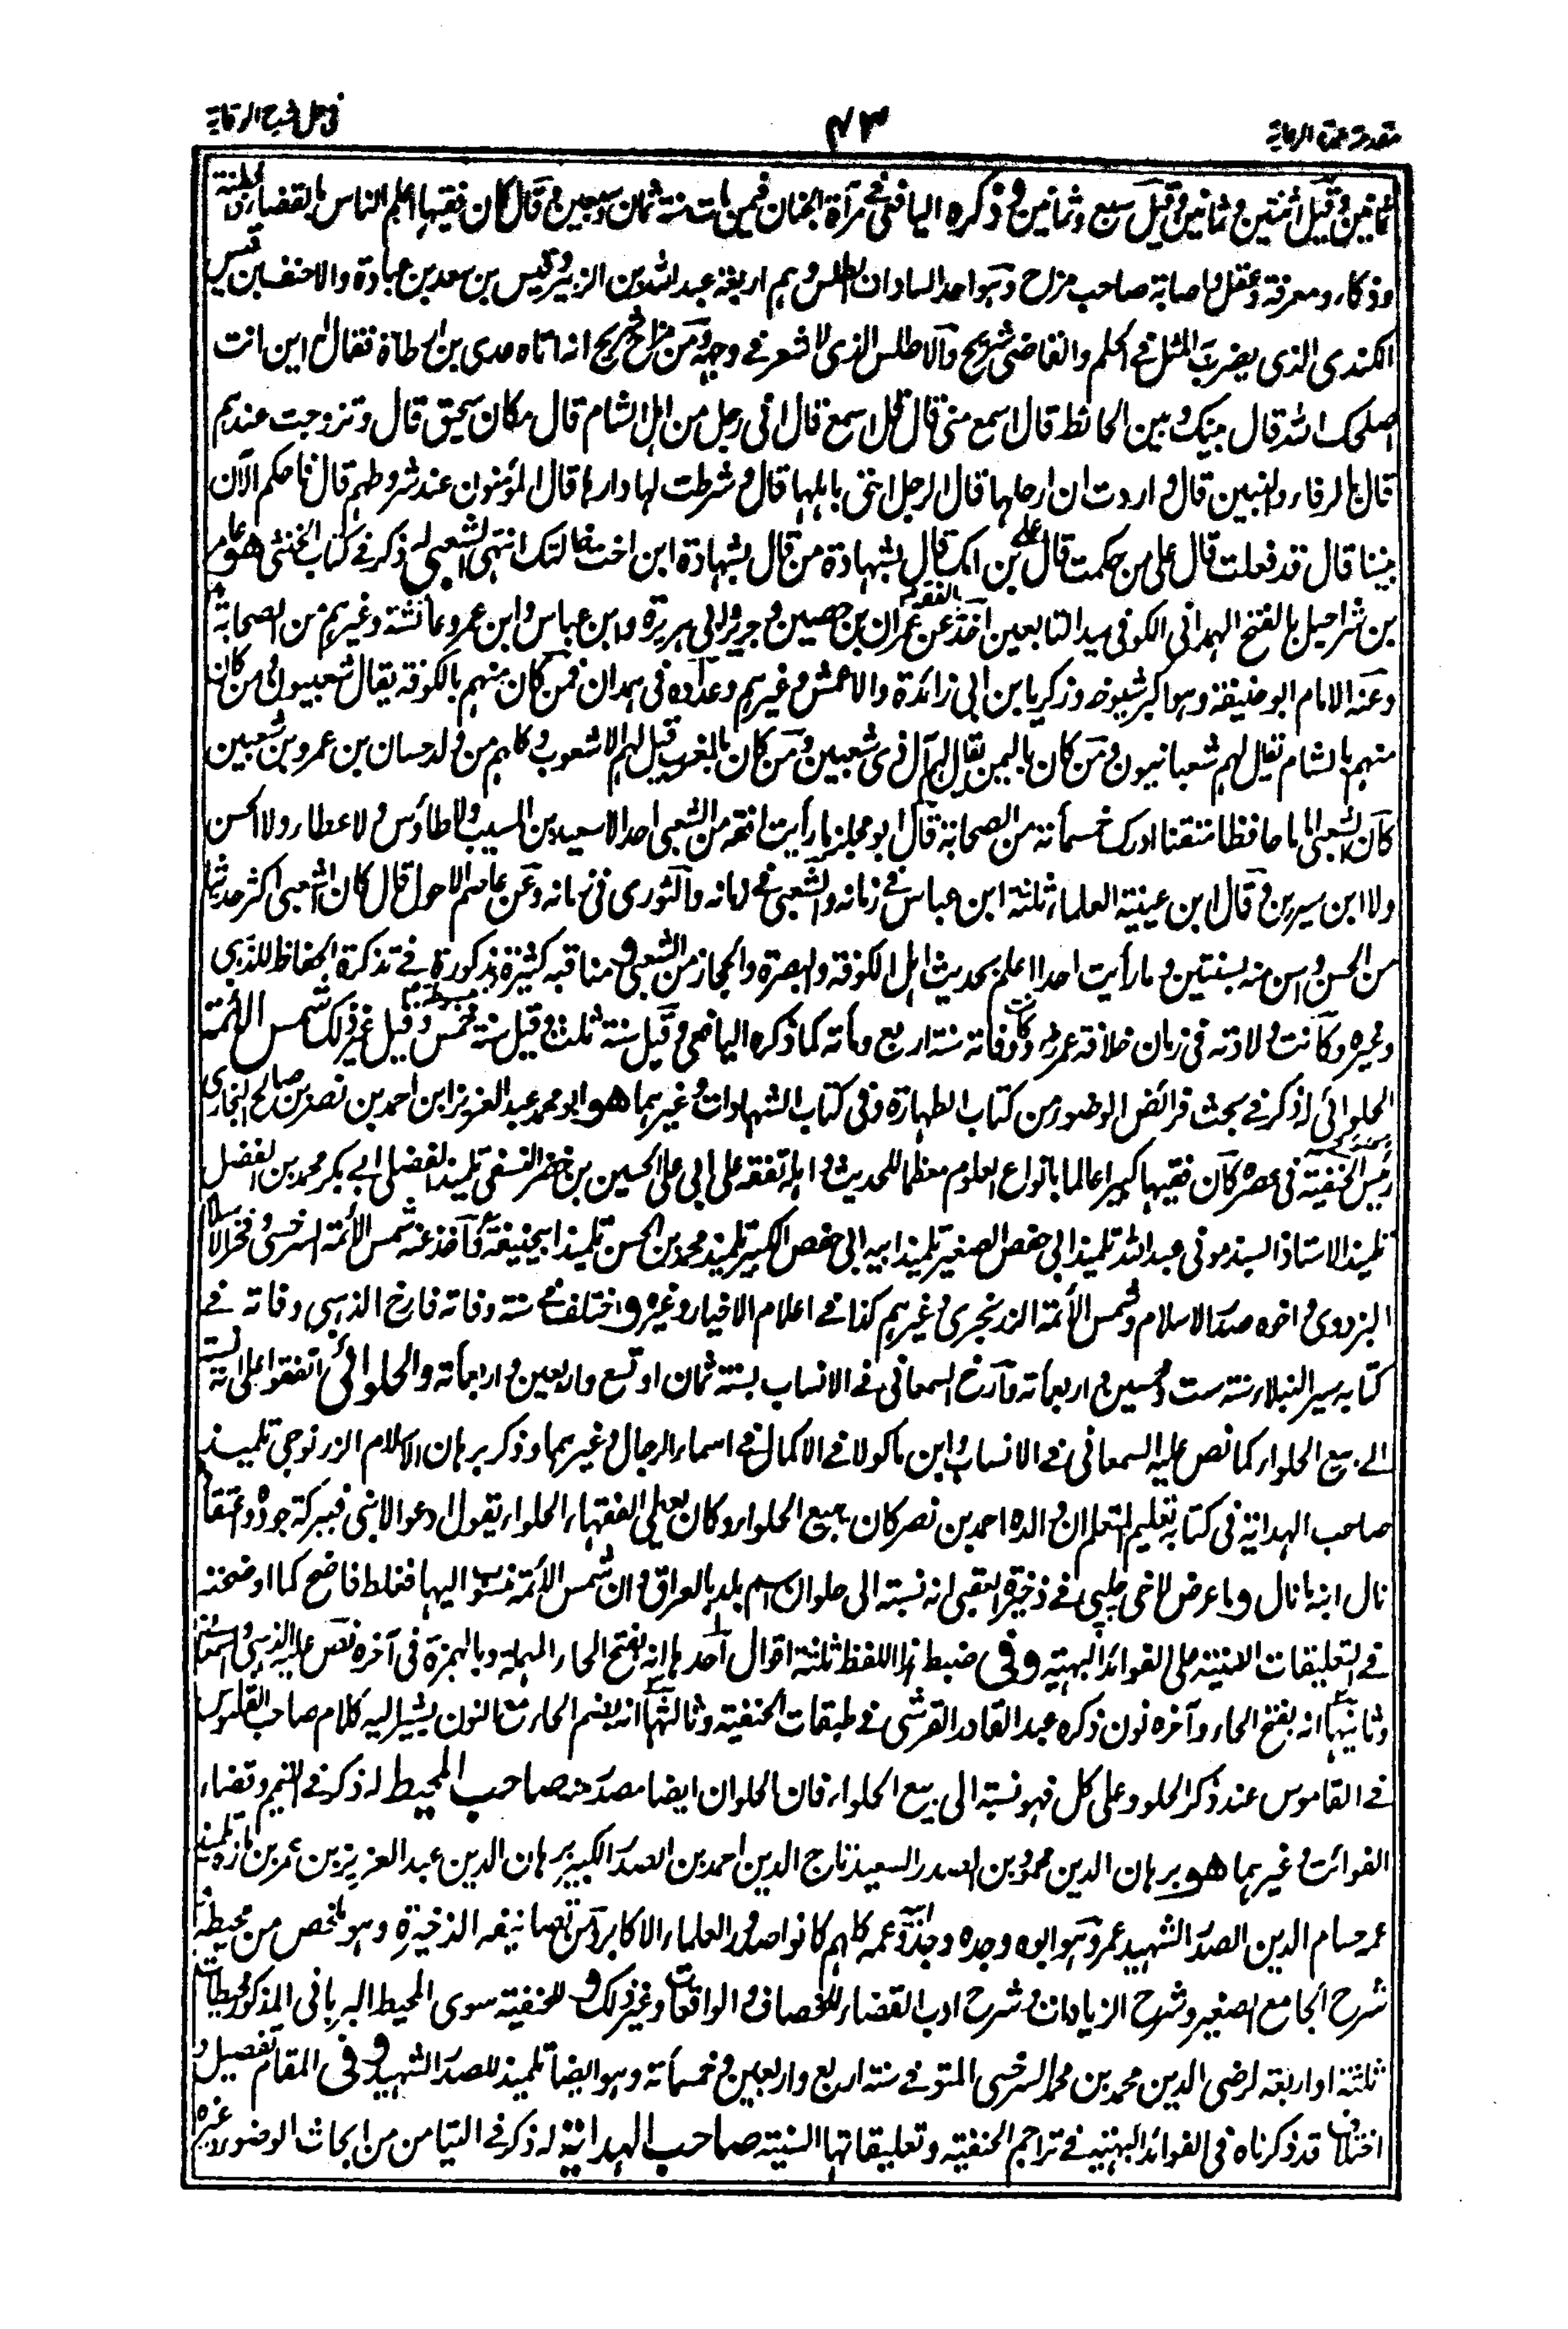 مقدمة عمدة الرعاية
٤٣
في حل شرح الوقاية
ثمانين وقيل اثنتين وثمانين وقيل سبع وثمانين وذكره اليافعي في مرآة الجنان فيمن مات سنة ثمان وسبعين وقال كان فقيها اعلم الناس بالقضاء ذا فطنة
وذكاء ومعرفة وعقل واصابة صاحب مزاح وهو احد السادات الطلس وهم اربعة عبد الله بن الزبير وقيس بن سعد بن عبادة والاحنف بن قيس
الكندي الذي يضرب به المثل في الحلم والقاضي شريح والاطلس الذي لا شعر في وجهه ومن مزاح شريح انه اتاه عدي بن ارطاة فقال له اين انت
اصلحك الله قال بينك وبين الحائط قال اسمع مني قال قل اسمع قال اني رجل من اهل الشام قال مكان سحيق قال وتزوجت عندهم
قال بالرفاء والبنين قال واردت ان ارحلها قال الرجل احق باهلها قال وشرطت لها دارها قال المؤمنون عند شروطهم قال فاحكم الآن
بيننا قال قد فعلت قال على من حكمت قال على ابن امك قال بشهادة من قال بشهادة ابن اخت خالتك انتهى الشعبي له ذكر في كتاب الخنثى هو عامر
بن شراحيل بالفتح الهمداني الكوفي سيد التابعين اخذ عن عمران بن حصين وجرير وابي هريرة وابن عباس وابن عمر وعائشة وغيرهم من الصحابة
وعنه الامام ابو حنيفة وهو اكبر شيوخه وزكريا بن ابي زائدة والاعمش وغيرهم وعداده في همدان فمن كان منهم بالكوفة يقال شعبيون ومن كان
منهم بالشام قيل لهم شعبانيون ومن كان باليمن يقال لهم آل ذي شعبين ومن كان بالمغرب قيل لهم الاشعوب وكلهم من ولد حسان بن عمرو بن شعبين
كان الشعبي اماما حافظا متقنا ادرك خمسمائة من الصحابة قال ابو مجلز ما رأيت افقه من الشعبي احدا لا سعيد بن المسيب ولا طاؤس ولا عطاء ولا الحسن
ولا ابن سيرين وقال ابن عيينة العلماء ثلثة ابن عباس في زمانه والشعبي في زمانه والثوري في زمانه وعن عاصم الاحول قال كان الشعبي اكثر حديثا
من الحسن واسن منه بسنتين وما رأيت احدا اعلم بحديث اهل الكوفة والبصرة والحجاز من الشعبي ومناقبه كثيرة مذكورة في تذكرة الحفاظ للذهبي
وغيره وكانت ولادته في زمان خلافة عمر وكانت وفاته سنة اربع ومأته كما ذكره اليافعي وقيل سنة ثلث وقيل سنة خمس وقيل غير ذلك شمس الائمة
الحلوائي له ذكر في بحث فرائض الوضوء من كتاب الطهارة وفي كتاب الشهادات وغيرهما هو ابو محمد عبد العزيز ابن احمد بن نصر بن صالح البخاري
رئيس الحنفية في عصره كان فقيها كبيرا عالما بانواع العلوم معظما للحديث واهله تفقه على ابي علي الحسين بن خضر النسفي تلميذ الفضلي ابي بكر محمد بن الفضل
تلميذ الاستاذ السبذموني عبد الله تلميذ ابي حفص الصغير تلميذ ابيه ابي حفص الكبير تلميذ محمد بن الحسن تلميذ ابيحنيفة وآخذ عنه شمس الائمة السرخسي وفخر الاسلام
البزدوي واخوه صدر الاسلام وشمس الائمة الزرنجري وغيرهم كذا في اعلام الاخيار وغيره واختلف في سنة وفاته فارخ الذهبي وفاته في
كتابه سير النبلاء سنة ست وخمسين واربعمائة وارخ السمعاني في الانساب بسنة ثمان او تسع واربعين واربعمائة والحلوائي اتفقوا على انه نسبة
الى بيع الحلواء كما نص عليه السمعاني في الانساب وابن ماكولا في الاكمال في اسماء الرجال وغيرهما وذكر برهان الاسلام الزرنوجي تلميذ
صاحب الهداية في كتابه تعليم المتعلم ان والده احمد بن نصر كان يبيع الحلواء وكان يعطي الفقهاء الحلواء يقول ادعوا لابني فببركة جوده واعتقاده
نال ابنه ما نال وما عرض لاخي جلبي في ذخيرة العقبى انه نسبة الى حلوان اسم بلد بالعراق وان شمس الائمة منسوب اليها فغلط فاضح كما اوضحته
في التعليقات السنية على الفوائد البهية وفي ضبط هذا اللفظ ثلثة اقوال احدها انه بفتح الحاء المهملة وبالهمزة في آخره نص عليه الذهبي والسمعاني
وثانيها انه بفتح الحاء وآخره نون ذكره عبد القادر القرشي في طبقات الحنفية وثالثها انه بضم الحاء مع النون يشير اليه كلام صاحب القاموس
في القاموس عند ذكر الحلو وعلى كل فهو نسبة الى بيع الحلواء فان الحلوان ايضا مصدر صاحب المحيط له ذكر في التيمم وقضاء
الفوائت وغيرهما هو برهان الدين محمود بن الصدر السعيد تاج الدين احمد بن الصدر الكبير برهان الدين عبد العزيز بن عمر بن مازه تلميذ
عمر حسام الدين الصدر الشهيد عمر وهو ابوه وجده وجد وعمه كلهم كانوا صدور العلماء الاكابر ومن تصانيفه الذخيرة وهو ملخص من محيطه
شرح الجامع الصغير وشرح الزيادات وشرح ادب القضاء للخصاف والواقعات وغير ذلك وللحنفية سوى المحيط البرهاني المذكور محيطات
ثلثة او اربعة لرضي الدين محمد بن محمد السرخسي المتوفى سنة اربع واربعين وخمسمائة وهو ايضا تلميذ للصدر الشهيد وفي المقام تفصيل و
اختلاف قد ذكرناه في الفوائد البهية في تراجم الحنفية وتعليقاتها السنية صاحب الهداية له ذكر في التيامن من ابحاث الوضوء وغيره